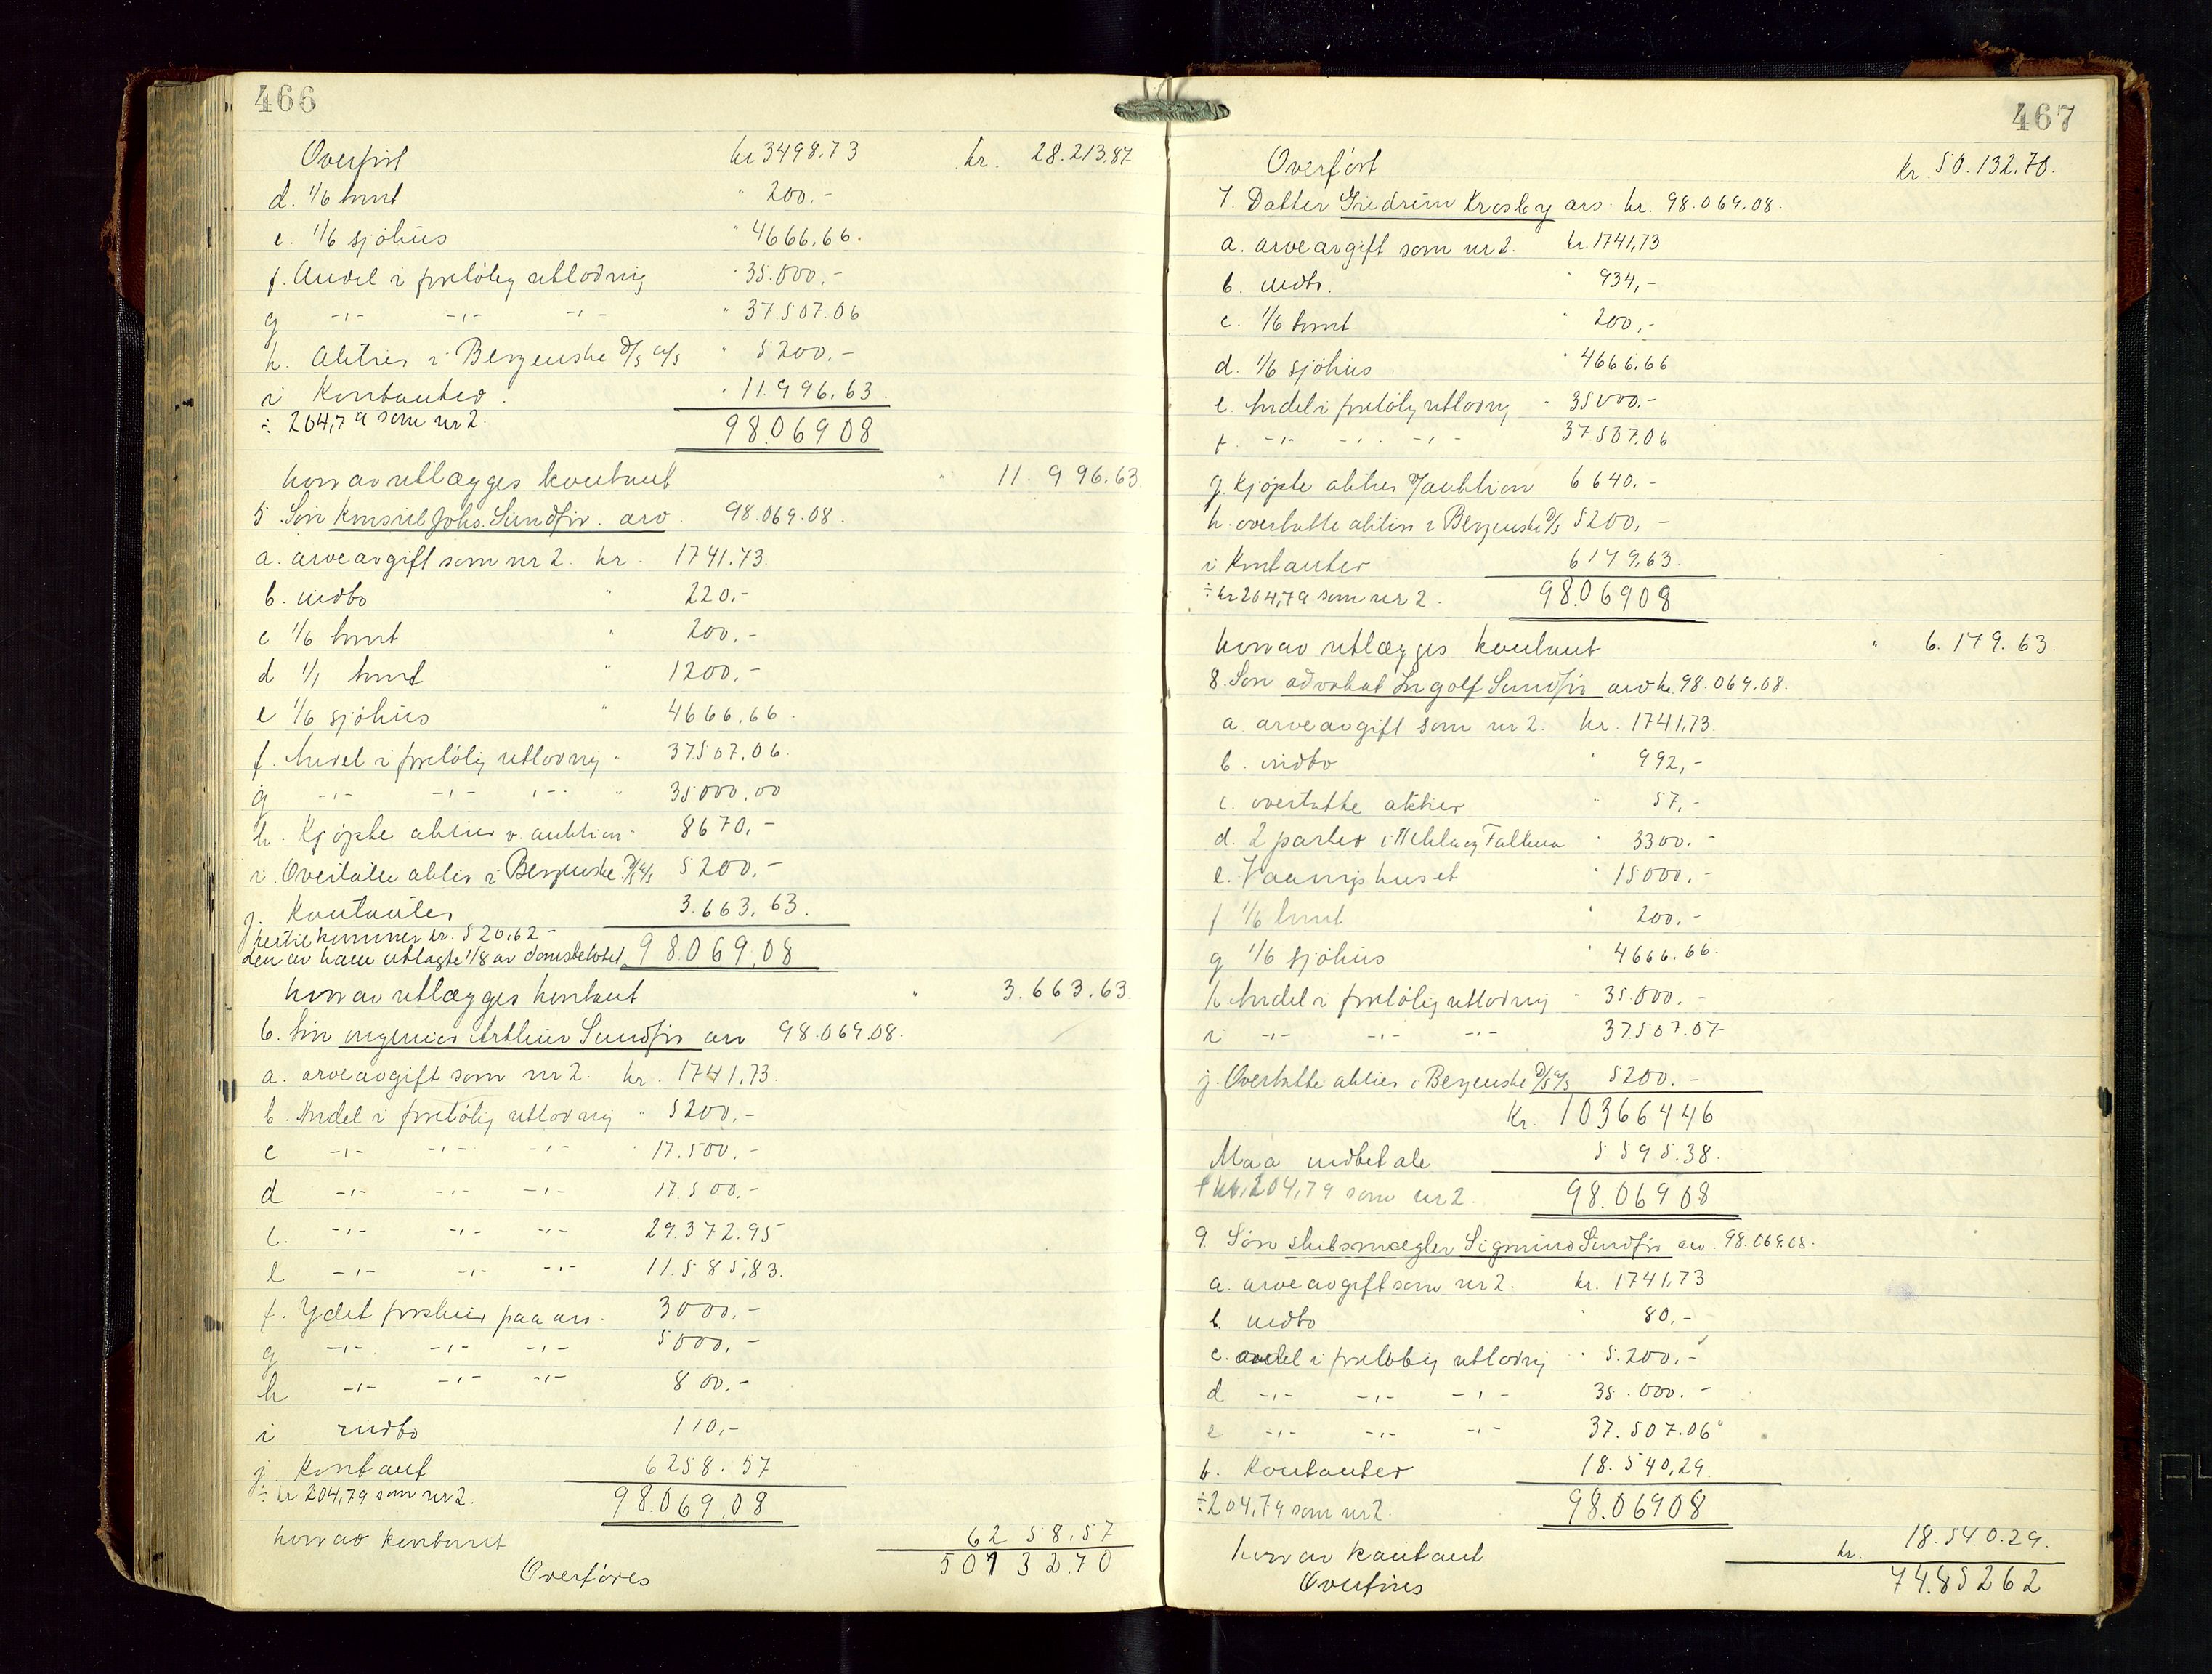 466
Overført kr 3498,73 kr. 28.213,87
d. 1/6 tomt " 200,-
e. 1/6 sjøhus " 4666,66.
f. Andel i foreløbig utlodning " 35.000,-
g -"- -"- -"- " 37.507.06
h. Aktier i Bergenske D/S a/s " 5200,-
i Kontanter. " 11.996,63.
÷ 204,79 som nr 2. 98.06908
hvorav utlægges kontant " 11.996.63
5. Søn Konsul Johs. Sundfør. arv. 98.069.08.
a. arveavgift som nr 2. kr. 1741.73.
b. indbo " 220,-
c 1/6 tomt " 200,-
d 1/1 tomt " 1200,-
e 1/6 sjøhus " 4666,66.
f. Andel i foreløbig utlodning " 37507,06.
g -"- -"- -"- " 35000,00
h. Kjøpte aktier v. auktion " 8670,-
i. Overtatte aktier i Bergenske D/S a/s 5200,-
j. Kontanter 3.663,63.
hertil kommer kr. 520,62 -
den av ham utlagte 1/8 av 98.069,08
hvorav utlægges kontant " 3.663,63.
6. Søn ingeniør Arthur Sundfør arv 98.069.08.
a. arveavgift som nr 2. kr. 1741,73.
b. Andel i foreløbig utlodning " 5200,-
c -"- -"- -"- " 17.500,-
d -"- -"- -"- 17.500,-
e. -"- -"- -"- 29.372.95
e -"- -"- -"- 11.585,83.
f. Ydet forskud paa arv. 3000,-
g -"- -"- -"- 5000,-
h -"- -"- -"- 800,-
i indbo 110,-
j. Kontant 6258.57
÷ kr 204,79 som nr 2. 98.069,08
hvorav kontant 6258,57
Overføres 50132.70
467
Overført kr. 50.132,70.
7. Datter Krosby arv. kr. 98.069.08.
a. arveavgift som nr 2. kr. 1741,73
b. indbo. " 934,-
c. 1/6 tomt " 200,-
d. 1/6 sjøhus " 4666,66
e. Andel i foreløbig utlodning " 35000,-
f. -"- -"- -"- 37507,06
g. Kjøpte aktier v/auktion 6640.-
h. overtatte aktier i Bergenske D/S 5200,-
i Kontanter 6179,63.
÷ kr 204,79 som nr 2. 98.06908
hvorav utlægges kontant " 6.179.63.
8. Søn advokat Ingolf Sundfør arv kr. 98.069.08.
a. arveavgift som nr 2. kr. 1741,73.
b. indbo " 992,-
c. overtatte aktier " 57,-
d. 2 parter i Falken " 3300.-
e. Vaaningshuset " 15000.-
f 1/6 tomt " 200.-
g 1/6 sjøhus " 4666.66.
h Andel i foreløbig utlodning " 35.000.-
i -"- -"- -"- 37.507.07
j. Overtatte aktier i Bergenske D/S a/s 5200.-
Kr. 10366446
Maa indbetale 5595.38.
+ kr. 204,79 som nr 2. 98.06908
9. Søn skibsmægler Sigmund Sundfør arv. 98.069.08.
a. arveavgift som nr 2. kr. 1741,73
b. indbo " 80,-
c. andel i foreløbig utlodning " 5.200,-
d -"- -"- -"- 35.000.-
e -"- -"- -"- 37.507.06
f. Kontanter 18.540,29.
÷ 204,79 som nr 2. 98.06908
hvorav kontant kr. 18.540.29.
Overføres 74.85262